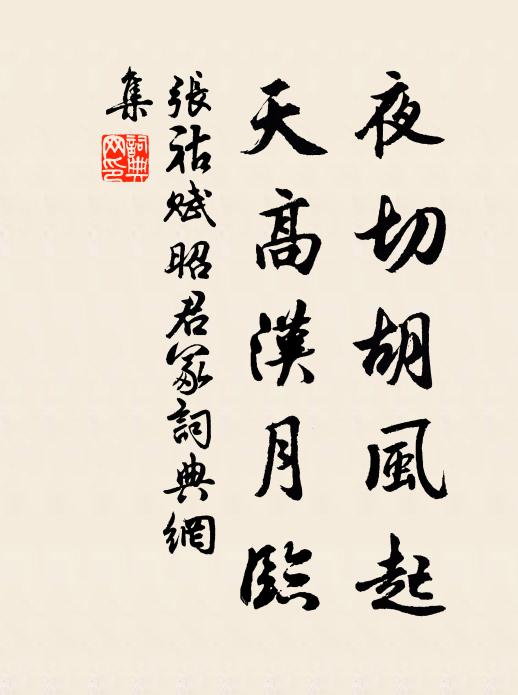 夜切胡風起
天高漢月臨
張祜賦昭君冢詞典網
集
詞典
网印